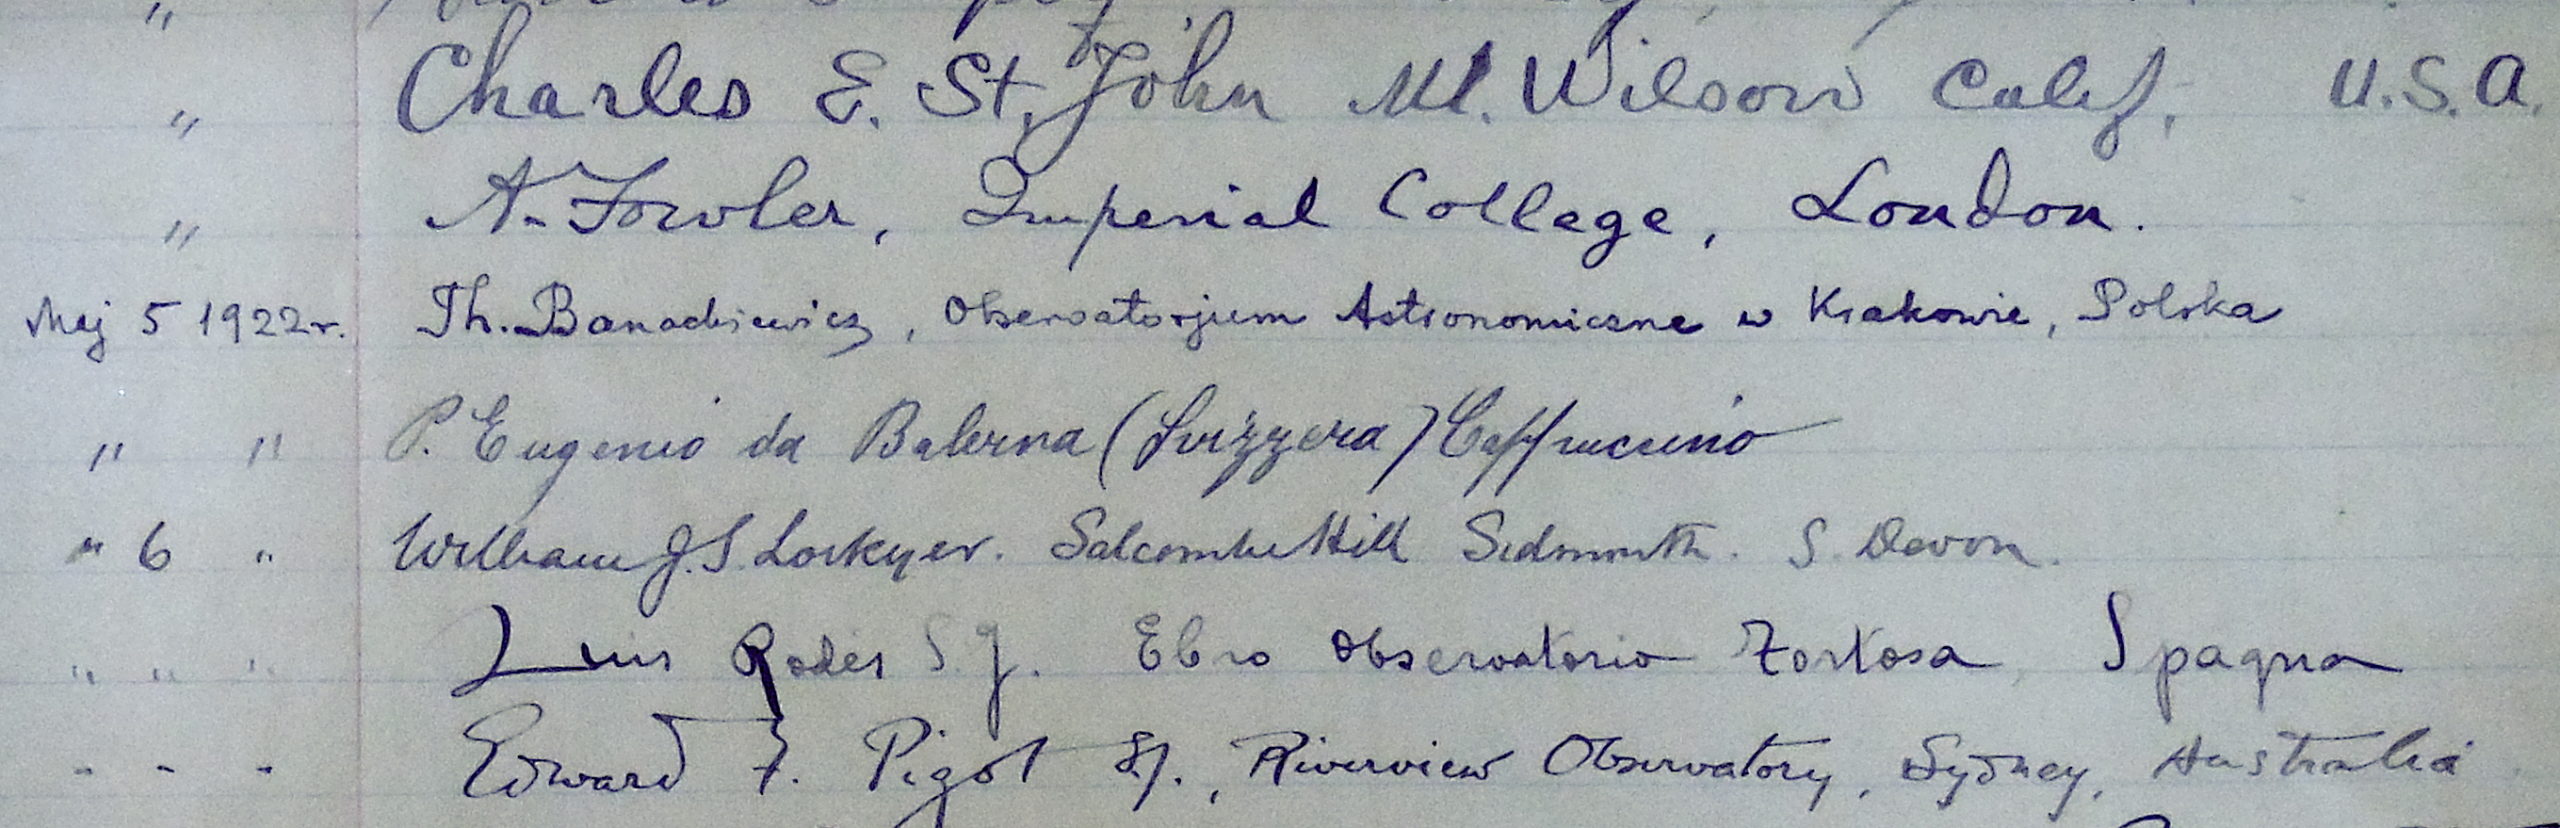 "
" Charles E. St. John Mt. Wilson Calif. U.S.A.
" A. Fowler, Imperial College, London.
Maj 5 1922r. Th. Banachiewicz, Obserwatorjum Astronomiczne w Krakowie, Polska
" " P. Eugenio da Balerna (Svizzera) Cappuccino
" 6 " William J.S. Lockyer. Salcombe Hill Sidmouth. S. Devon.
" " " Luis Rodés S.J. Ebro Observatorio Tortosa, Spagna
" " " Edward F. Pigot S.J., Riverview Observatory, Sydney, Australia